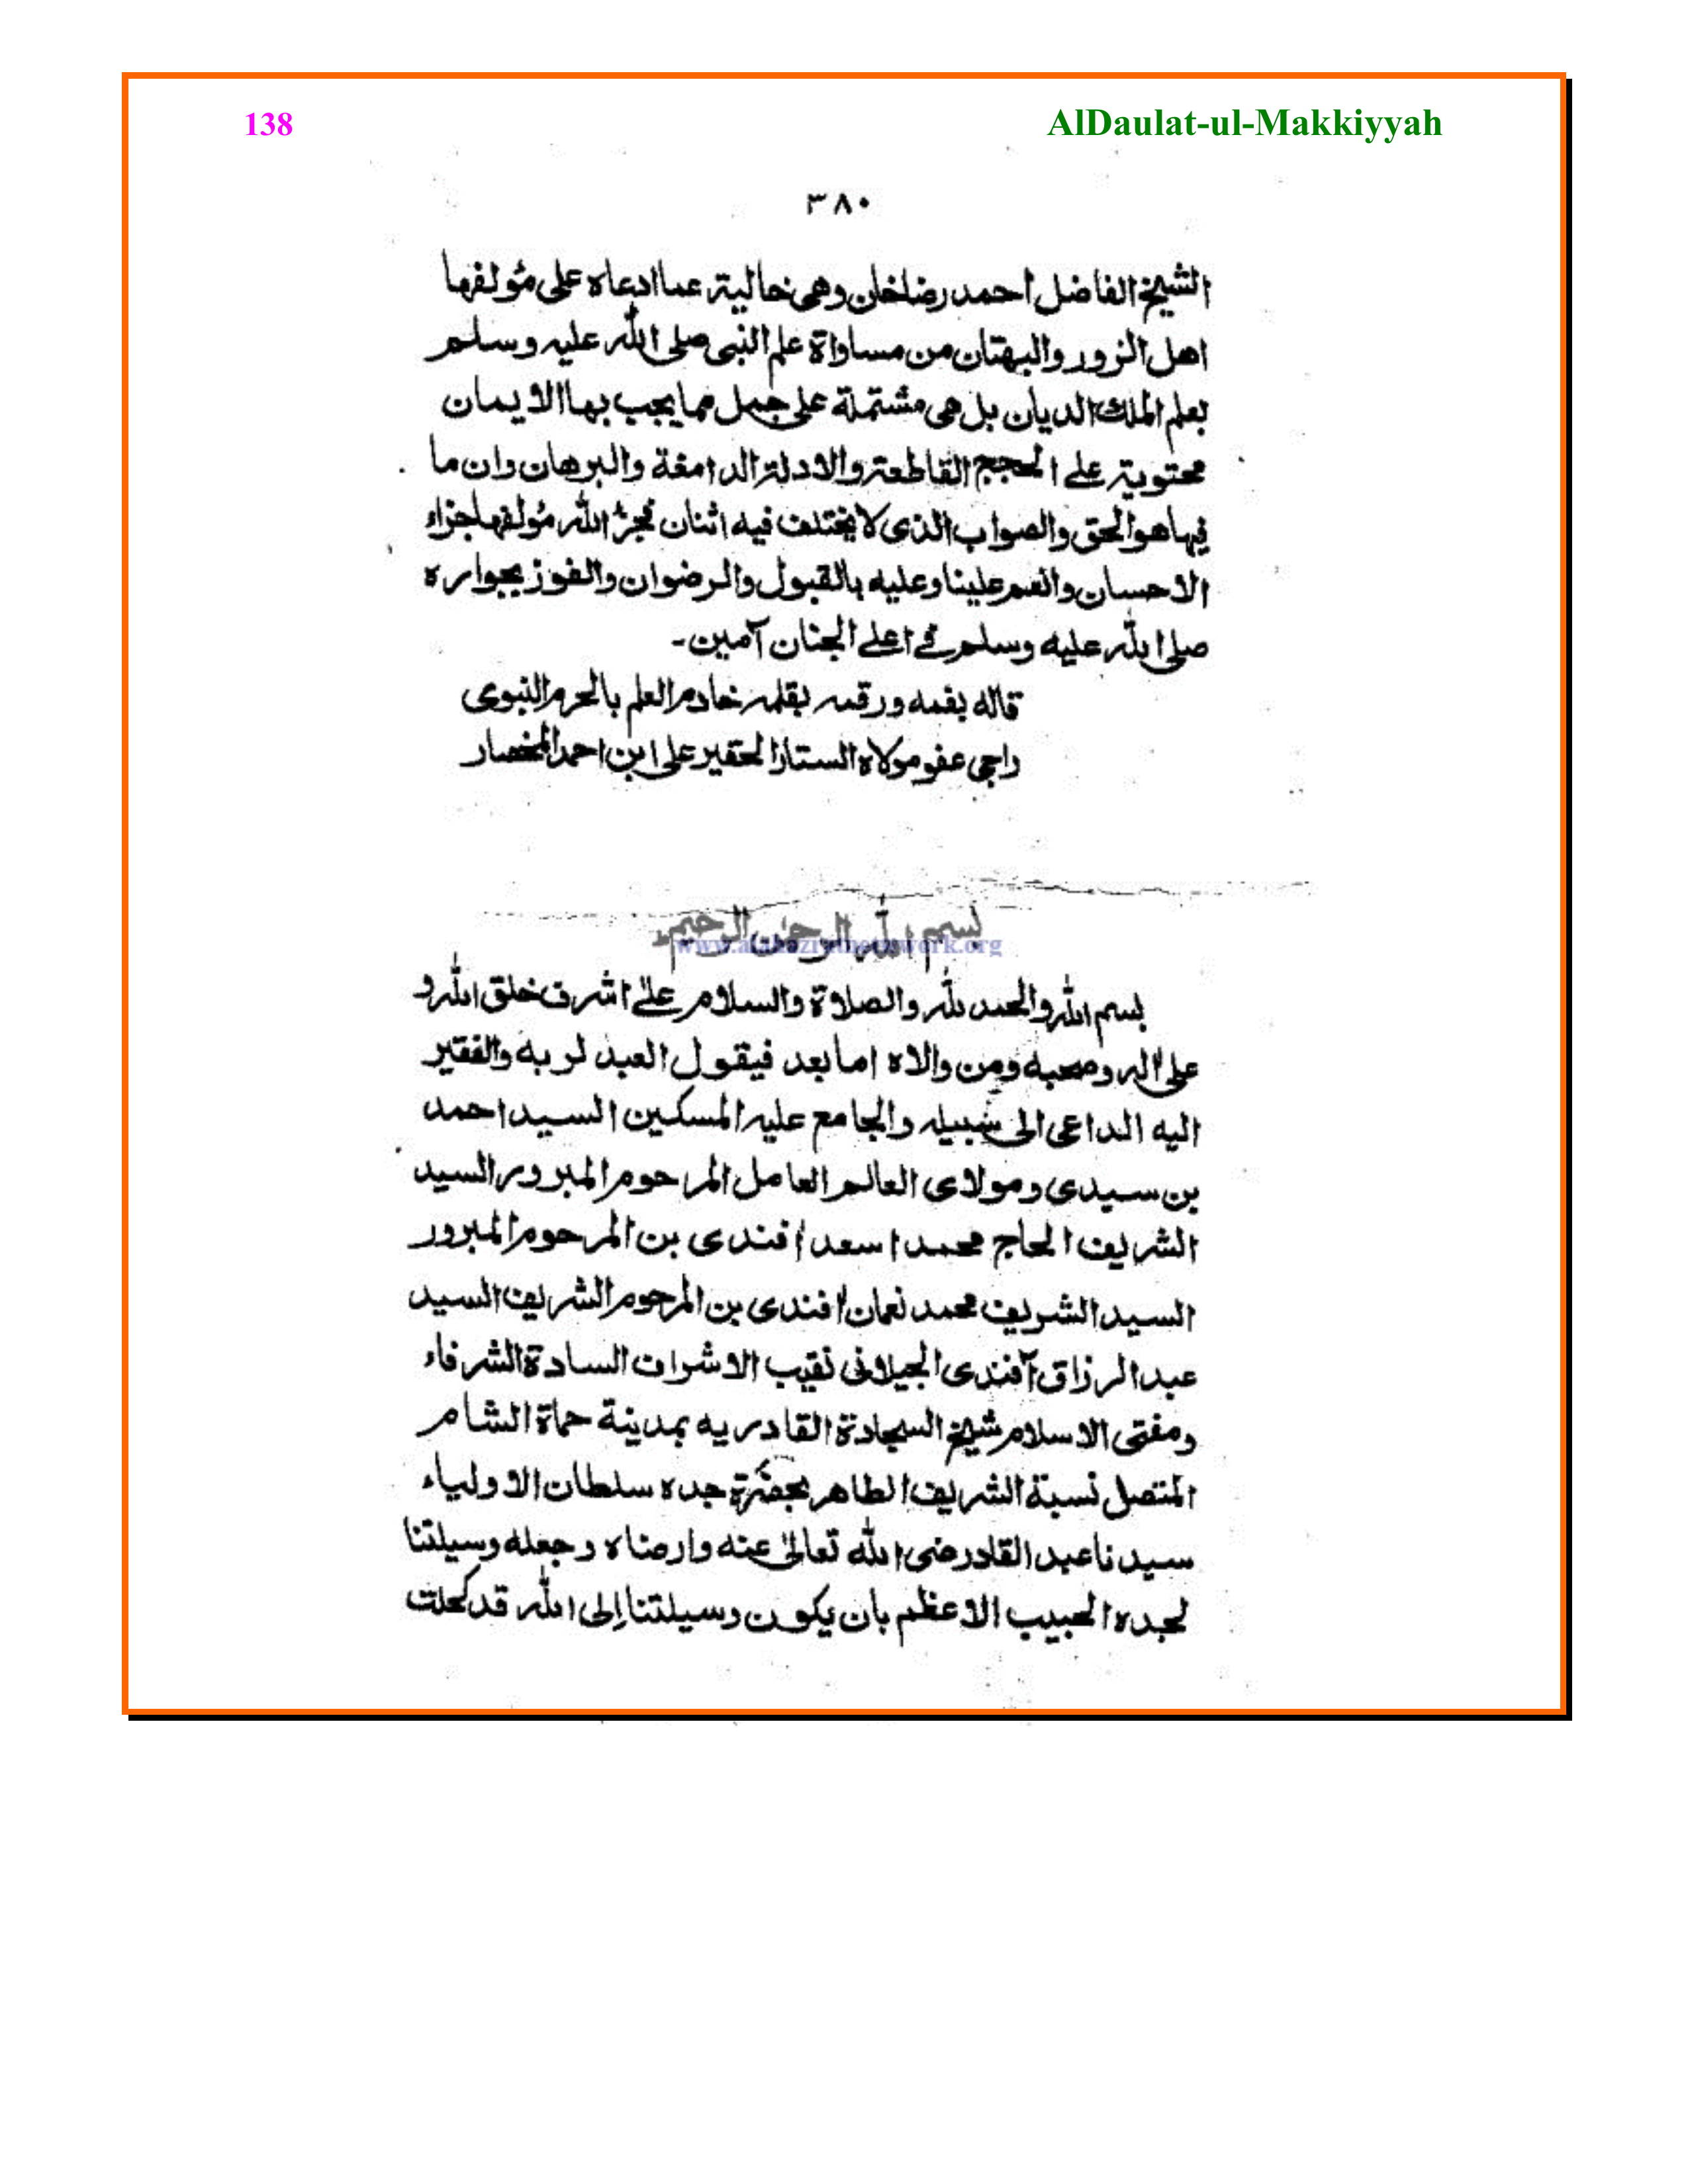 138
AlDaulat-ul-Makkiyyah
٣٨٠
الشيخ الفاضل احمد رضاخان وهى خالية عما ادعاه على مؤلفها
اهل الزور والبهتان من مساواة علم النبى صلى الله عليه وسلم
بعلم الملك الديان بل هى مشتملة على جمل مما يجب بها الايمان
محتوية على الحجج القاطعة والادلة الدامغة والبرهان وان ما
فيها هو الحق والصواب الذى لا يختلف فيه اثنان فجزىٰ الله مؤلفها جزاء
الاحسان وانعم علينا وعليه بالقبول والرضوان والفوز بجواره
صلى الله عليه وسلم فى اعلے الجنان آمين۔
قاله بفمه ورقمه بقلمه خادم العلم بالحرم النبوى
راجى عفو مولاه الستار الحقير على ابن احمد المحضار
بسم الله الرحمٰن الرحيم
بسم الله والحمد لله والصلاة والسلام علىٰ اشرف خلق الله و
على اٰله وصحبه ومن والاه اما بعد فيقول العبد لربه والفقير
اليه الداعى الى سبيله والجامع عليه المسكين السيد احمد
بن سيدى ومولاى العالم العامل المرحوم المبرور السيد
الشريف الحاج محمد اسعد افندى بن المرحوم المبرور
السيد الشريف محمد نعمان افندى بن المرحوم الشريف السيد
عبد الرزاق آفندى الجيلانى نقيب الاشراف السادة الشرفاء
ومفتى الاسلام شيخ السجادة القادريه بمدينة حماة الشام
المتصل نسبة الشريف الطاهر بحضرة جده سلطان الاولياء
سيدنا عبد القادر رضى الله تعالىٰ عنه وارضاه وجعله وسيلتنا
لجده الحبيب الاعظم بان يكون وسيلتنا إلى الله قد كحلت